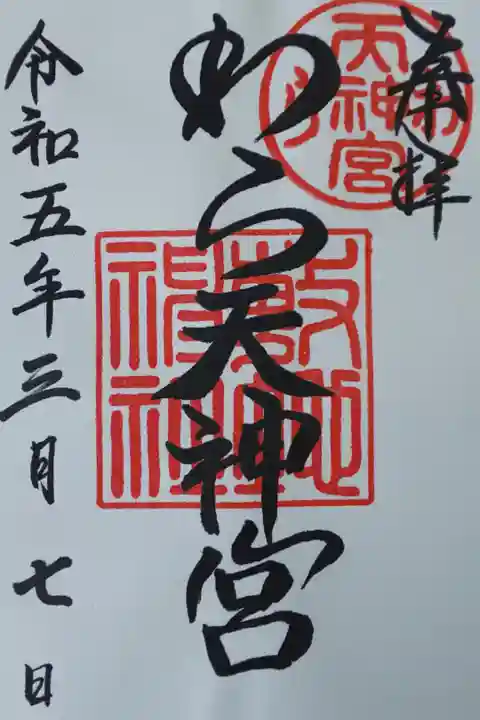 奉拝
わら天神宮
令和五年三月七日
天神宮
敷地神社